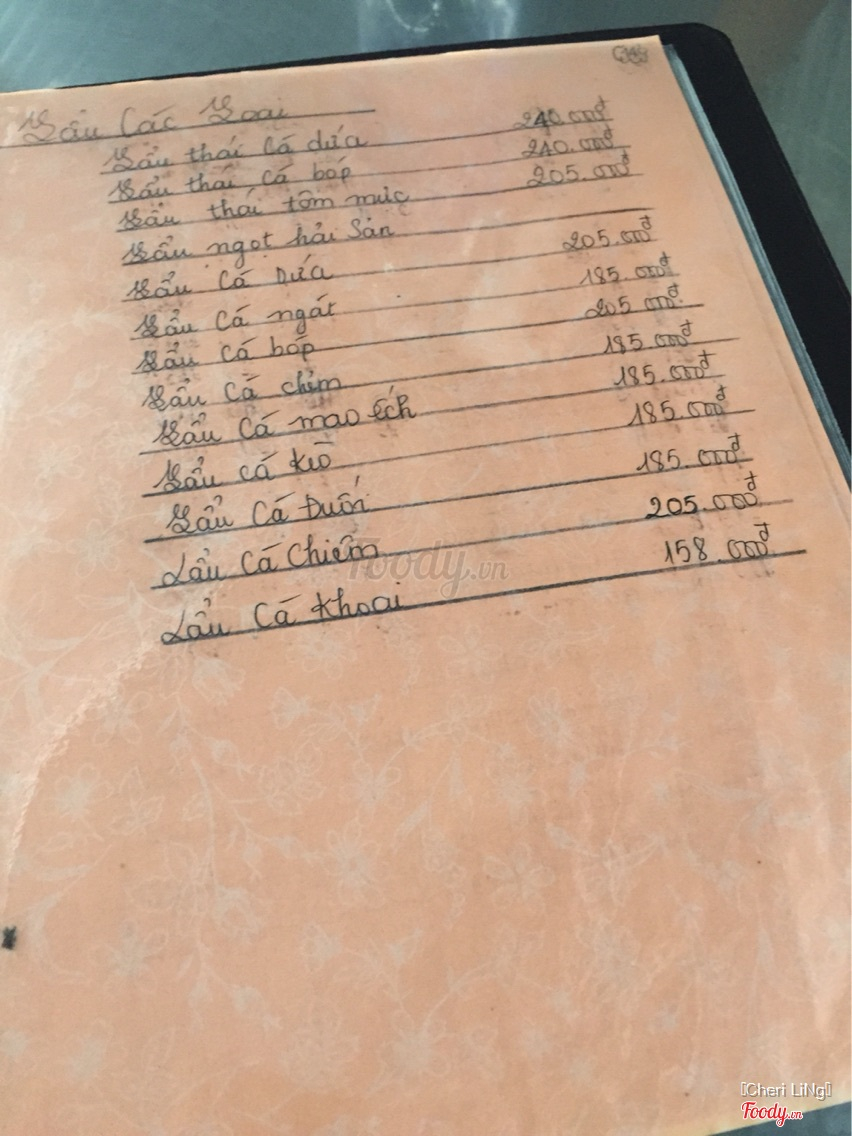 Lẩu Các Loại
Lẩu thái Cá dứa 240.000đ
Lẩu thái Cá bớp 240.000đ
Lẩu thái tôm mực 205.000đ
Lẩu ngọt hải Sản
Lẩu Cá Dứa 205.000đ
Lẩu Cá ngát 185.000đ
Lẩu Cá bớp 205.000đ
Lẩu Cá chim 185.000đ
Lẩu Cá mao ếch 185.000đ
Lẩu cá Kìo 185.000đ
Lẩu Cá Đuối 185.000đ
Lẩu Cá Chiêm 205.000đ
Lẩu Cá Khoai 158.000đ
Foody.vn
[Cheri LiNg]
Foody.vn